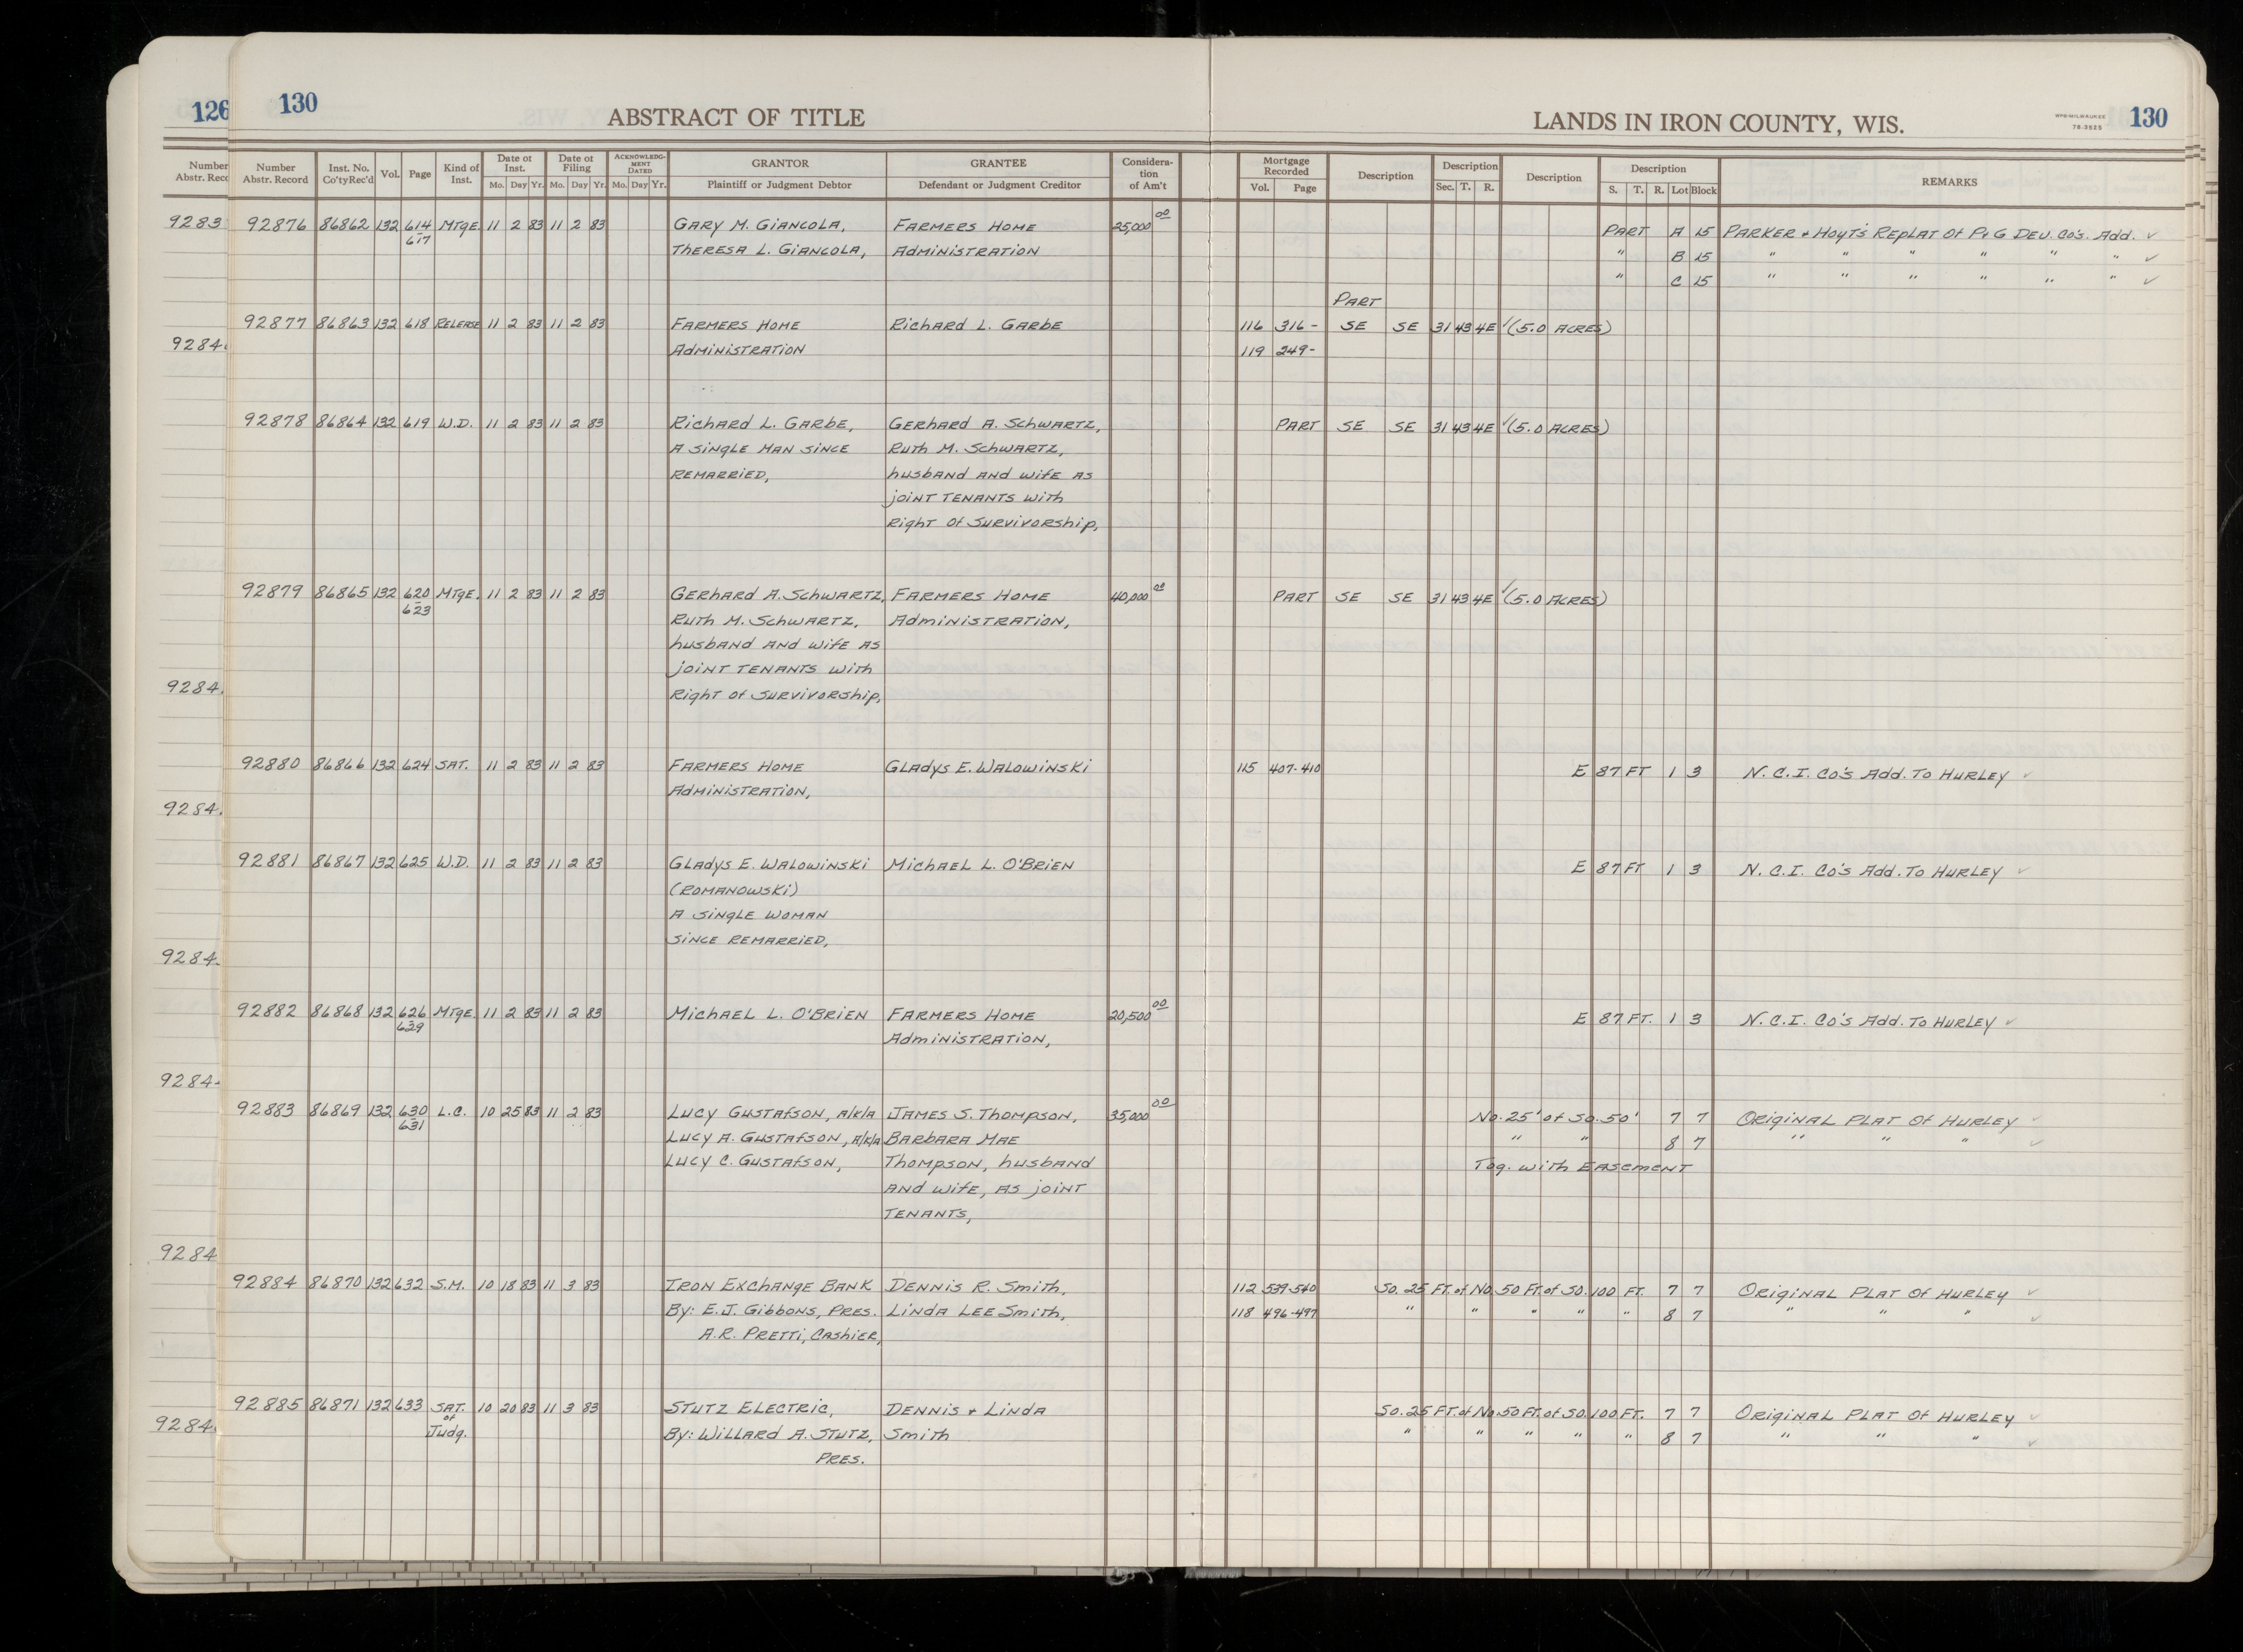 126 130 ABSTRACT OF TITLE LANDS IN IRON COUNTY, WIS. WPB-MILWAUKEE 78-3525 130
Number Abstr. Record Number Abstr. Record Inst. No. Co'ty Rec'd Vol. Page Kind of Inst. Date of Inst. Mo. Day Yr. Date of Filing Mo. Day Yr. ACKNOWLEDGMENT DATED Mo. Day Yr. GRANTOR Plaintiff or Judgment Debtor GRANTEE Defendant or Judgment Creditor Consideration of Am't Mortgage Recorded Vol. Page Description Description Sec. T. R. Description Description S. T. R. Lot Block REMARKS
92876 86862 132 614 MTGE. 11 2 83 11 2 83 GARY M. GIANCOLA, FARMERS HOME 25,000 00 PART A 15 PARKER + HOYT'S REPLAT OF P+G DEV. CO'S. ADD. ✓
617 THERESA L. GIANCOLA, ADMINISTRATION " B 15 " " " " " " ✓
" C 15 " " " " " " ✓
PART
92877 86863 132 618 RELEASE 11 2 83 11 2 83 FARMERS HOME RICHARD L. GARBE 116 316- SE SE 31 43 4E ✓(5.0 ACRES)
ADMINISTRATION 119 249-
92878 86864 132 619 W.D. 11 2 83 11 2 83 RICHARD L. GARBE, GERHARD A. SCHWARTZ, PART SE SE 31 43 4E ✓(5.0 ACRES)
A SINGLE MAN SINCE RUTH M. SCHWARTZ,
REMARRIED, HUSBAND AND WIFE AS
JOINT TENANTS WITH
RIGHT OF SURVIVORSHIP,
92879 86865 132 620 MTGE. 11 2 83 11 2 83 GERHARD A. SCHWARTZ, FARMERS HOME 40,000 00 PART SE SE 31 43 4E ✓(5.0 ACRES)
623 RUTH M. SCHWARTZ, ADMINISTRATION,
HUSBAND AND WIFE AS
JOINT TENANTS WITH
RIGHT OF SURVIVORSHIP,
92880 86866 132 624 SAT. 11 2 83 11 2 83 FARMERS HOME GLADYS E. WALOWINSKI 115 407-410 E 87 FT 1 3 N. C. I. CO'S ADD. TO HURLEY ✓
ADMINISTRATION,
92881 86867 132 625 W.D. 11 2 83 11 2 83 GLADYS E. WALOWINSKI MICHAEL L. O'BRIEN E 87 FT 1 3 N. C. I. CO'S ADD. TO HURLEY ✓
(ROMANOWSKI)
A SINGLE WOMAN
SINCE REMARRIED,
92882 86868 132 626 MTGE. 11 2 83 11 2 83 MICHAEL L. O'BRIEN FARMERS HOME 20,500 00 E 87 FT. 1 3 N. C. I. CO'S ADD. TO HURLEY ✓
629 ADMINISTRATION,
92883 86869 132 630 L.C. 10 25 83 11 2 83 LUCY GUSTAFSON, A/K/A JAMES S. THOMPSON, 35,000 00 NO. 25' OF SO. 50' 7 7 ORIGINAL PLAT OF HURLEY ✓
631 LUCY A. GUSTAFSON, A/K/A BARBARA MAE " " 8 7 " " " ✓
LUCY C. GUSTAFSON, THOMPSON, HUSBAND TOG. WITH EASEMENT
AND WIFE, AS JOINT
TENANTS,
92884 86870 132 632 S.M. 10 18 83 11 3 83 IRON EXCHANGE BANK DENNIS R. SMITH, 112 539-540 SO. 25 FT. OF NO 50 FT. OF SO. 100 FT. 7 7 ORIGINAL PLAT OF HURLEY ✓
BY: E.J. GIBBONS, PRES. LINDA LEE SMITH, 118 496-497 " " " " " 8 7 " " " ✓
A.R. PRETTI, CASHIER,
92885 86871 132 633 SAT. 10 20 83 11 3 83 STUTZ ELECTRIC, DENNIS + LINDA SO. 25 FT. OF NO. 50 FT. OF SO. 100 FT. 7 7 ORIGINAL PLAT OF HURLEY ✓
OF JUDG. BY: WILLARD A. STUTZ, SMITH " " " " " 8 7 " " " ✓
PRES.